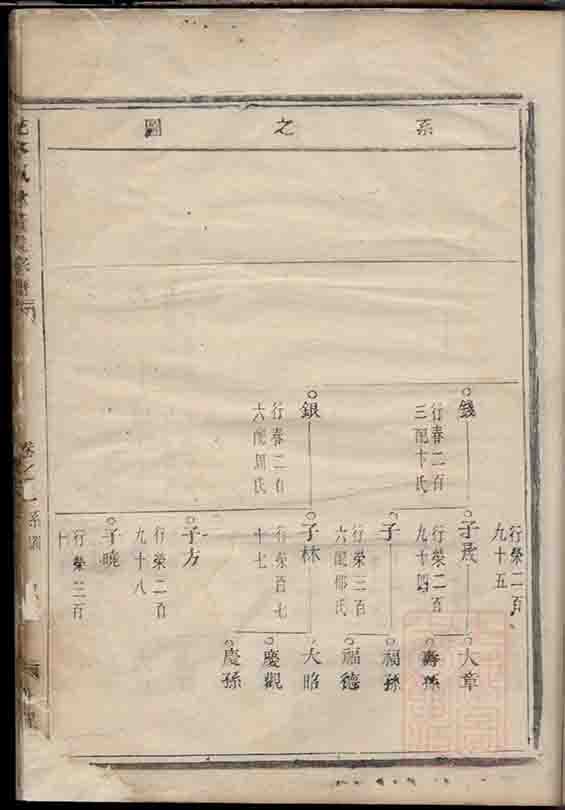 系之圖
錢
行春二百
三配卞氏
銀
行春二百
六配周氏
行榮二百
九十五
子晟
行榮二百
九十四
子
行榮三百
六配鄒氏
子林
行榮百七
十七
子方
行榮二百
九十八
子曉
行榮三百
十
大章
壽孫
福孫
福德
大昭
慶觀
慶孫
卷之一
系圖